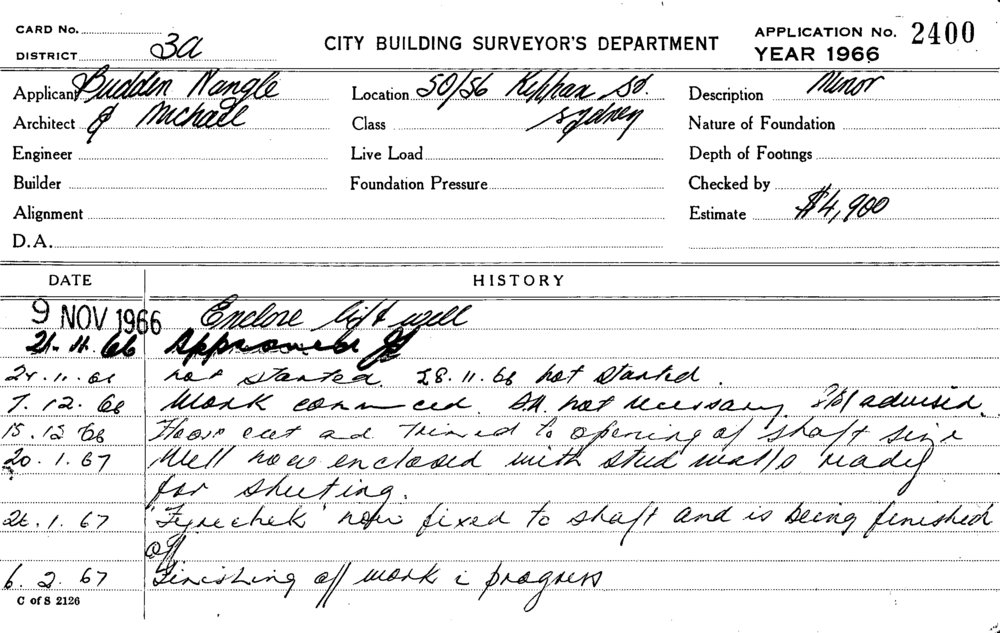 CARD No.
DISTRICT 3a
CITY BUILDING SURVEYOR'S DEPARTMENT
APPLICATION No. 2400
YEAR 1966
Applicant Budden Nangle
Architect & Michael
Engineer
Builder
Alignment
D.A.
Location 50/56 Kippax St.
Class Sydney
Live Load
Foundation Pressure
Description Minor
Nature of Foundation
Depth of Footings
Checked by
Estimate $4,900
DATE HISTORY
9 NOV 1966 Enclose lift well
21.11.66 Approved
24.11.66 not started. 28.11.66 not started.
7.12.66 Work commced. not necessary. advised.
15.12.66 Floor cut and trimed to opening of shaft size
20.1.67 Well now enclosed with stud walls ready
for sheeting.
26.1.67 'Fyrechek' now fixed to shaft and is being finished
off
6.2.67 Finishing off work i progress
C of S 2126